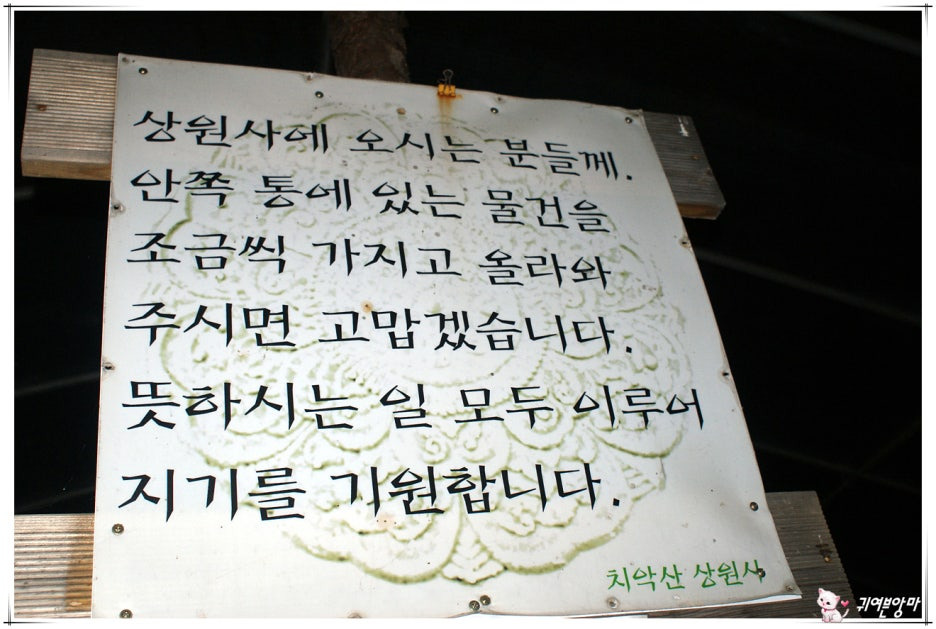 상원사에 오시는 분들께.
안쪽 통에 있는 물건을
조금씩 가지고 올라와
주시면 고맙겠습니다.
뜻하시는 일 모두 이루어
지기를 기원합니다.
치악산 상원사
귀여븐앙마